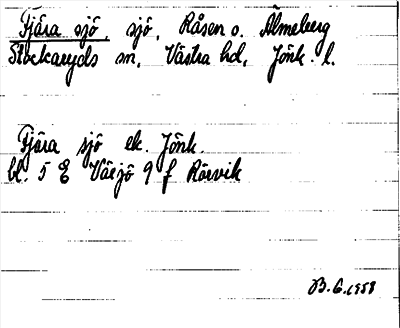 Fjära sjö, sjö, Råsen o. Älmeberg
Stockaryds sn, Västra hd, Jönk. l.
Fjära sjö ek. Jönk.
bl. 5 E Växjö 9 f Rörvik
B.G. 1958